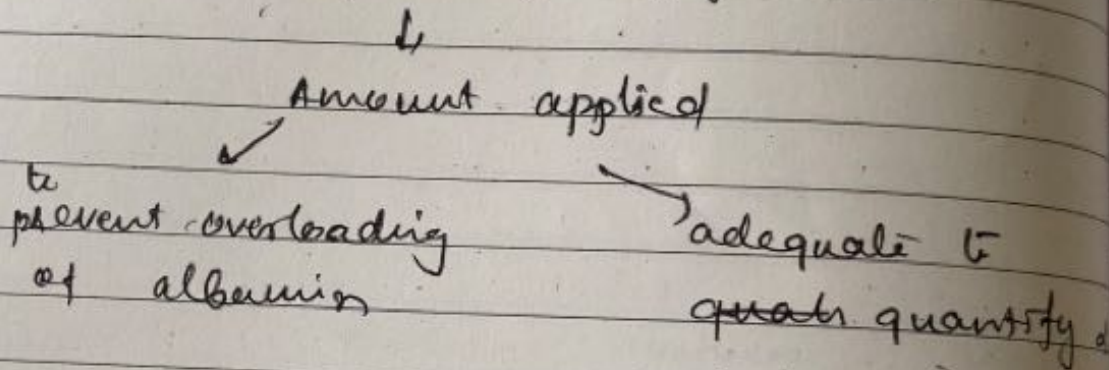 Amount applied
to
prevent overloading
of albumin
adequate to
quah quantify